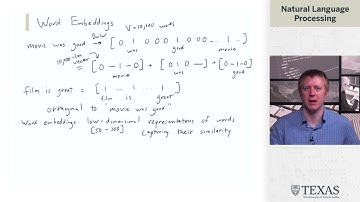 Word Embeddings
V = 10,000 words
movie was good → BoW [0 1 0 0 0 1 0 0 0 ... 1 ..]
was good movie
10,000-dim vector
= [0 - 1 - 0] + [0 1 0 —] + [0 - 1 - 0]
movie was good
film is great = [1 ... 1 ... 1]
film is great
orthogonal to "movie was good"
Word embeddings: low-dimensional representations of words
[50 - 300] capturing their similarity
Natural Language
Processing
TEXAS
The University of Texas at Austin